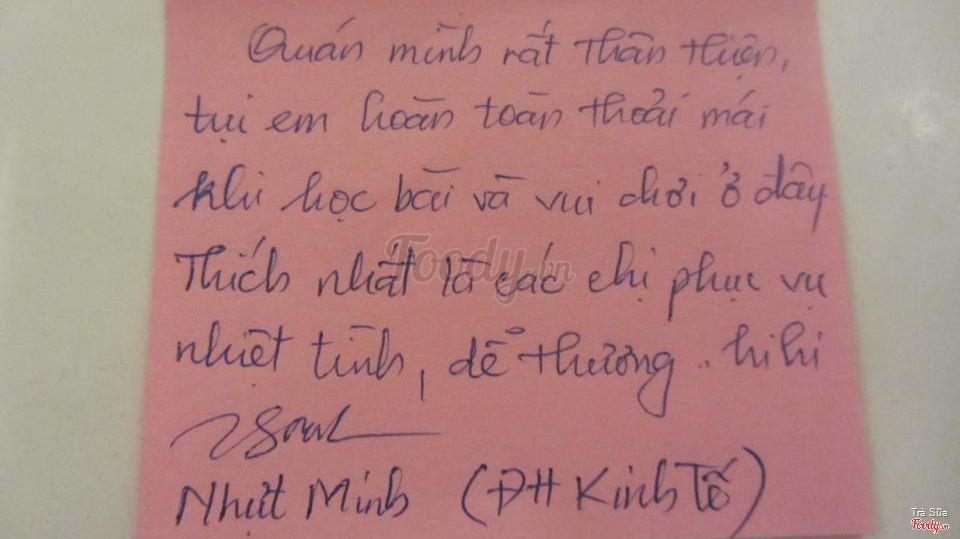 Quán mình rất thân thiện,
tụi em hoàn toàn thoải mái
khi học bài và vui chơi ở đây
Thích nhất là các chị phục vụ
nhiệt tình, dễ thương .. hihi
Nhựt Minh (ĐH Kinh Tế)
Foody.vn
Trà Sữa
Foody.vn